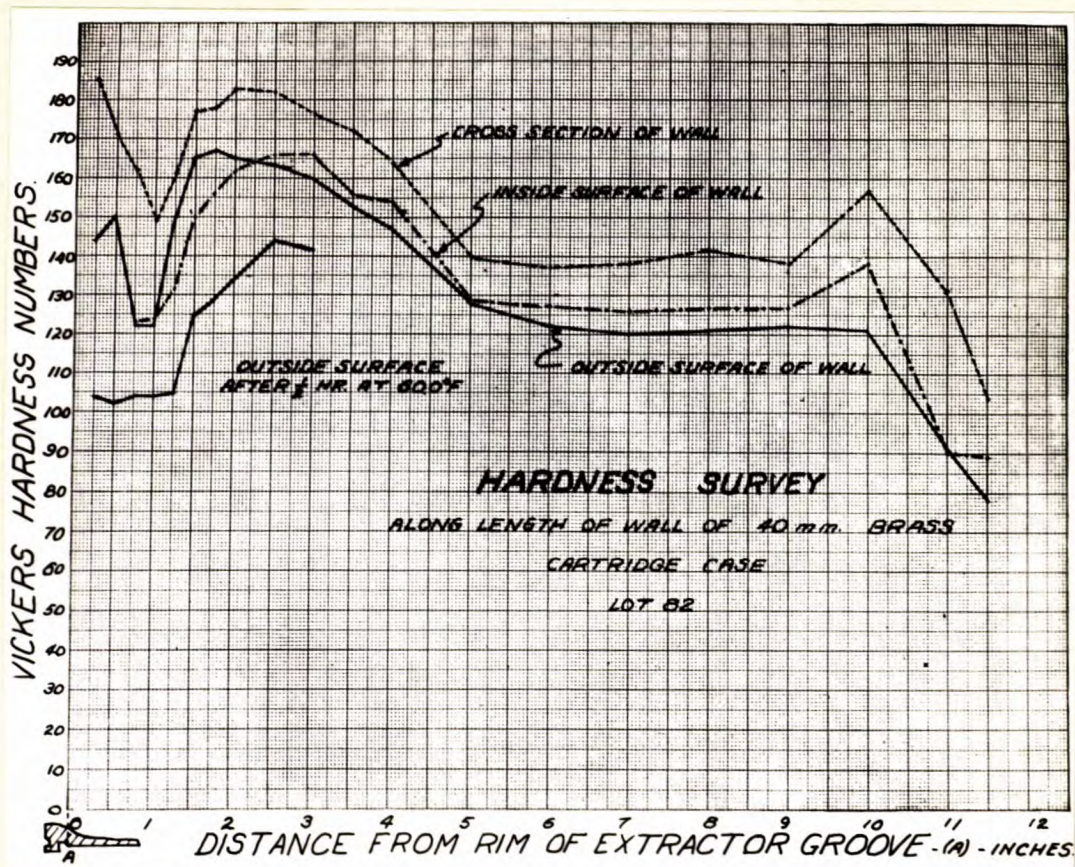 VICKERS HARDNESS NUMBERS.
190
180
170
160
150
140
130
120
110
100
90
80
70
60
50
40
30
20
10
0
CROSS SECTION OF WALL
INSIDE SURFACE OF WALL
OUTSIDE SURFACE
AFTER ½ HR. AT 600°F
OUTSIDE SURFACE OF WALL
HARDNESS SURVEY
ALONG LENGTH OF WALL OF 40 mm. BRASS
CARTRIDGE CASE
LOT 82
0 1 2 3 4 5 6 7 8 9 10 11 12
A
DISTANCE FROM RIM OF EXTRACTOR GROOVE -(A)- INCHES.